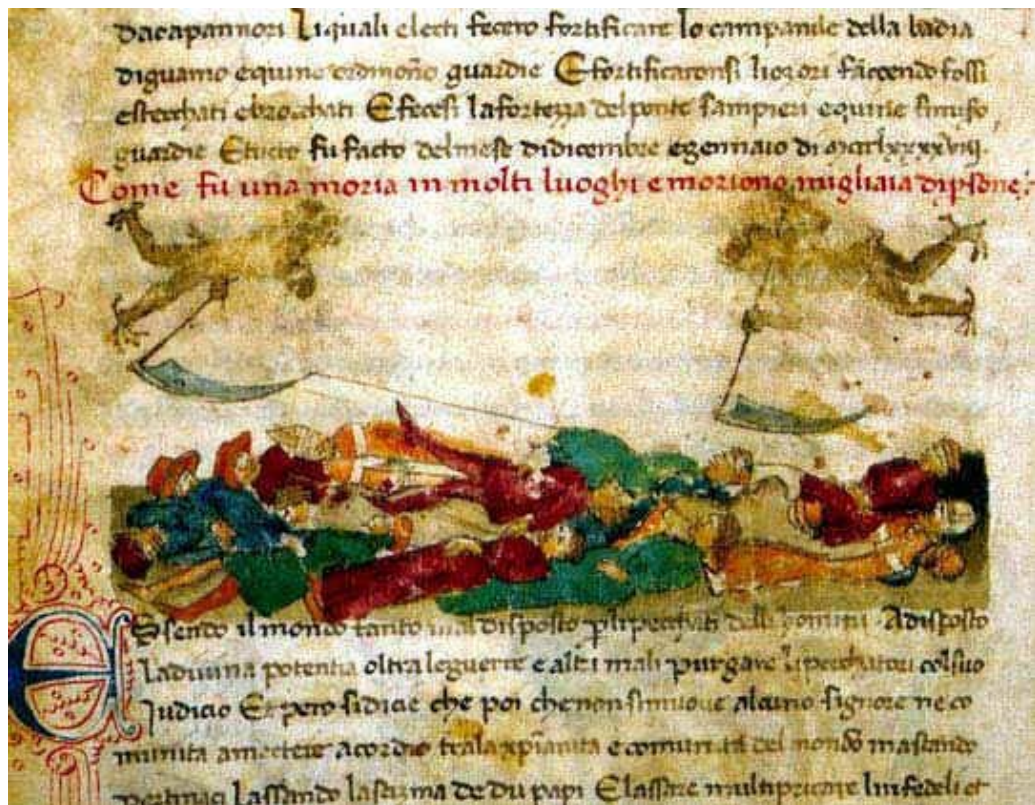 dacapannori Liquali electi fecero fortificare lo campanile della badia
diguamo equine ordinono guardie E fortificaronsi liozori faccendo fossi
estecchati ebrocchati E fecesi la fortezza del ponte sampieri equine simiso
guardie E tucto fu facto delmese didicembre egennaio di mccclxxxxviij.
Come fu una moria in molti luoghi e moriono migliaia dipsone
Essendo il mondo tanto mal disposto plipecchati delli homini Adisposto
Ladiuina potentia oltra leguerre e altri mali purgare li peccatori colsuo
Judicio Et pero sidicie che poi che non simuove alcuno signore ne co
munita amectere acordio tralaxpianita e comunità del mondo mastando
pertinaci Lassando lascizma de du papi E lassare multipricare linfedeli et